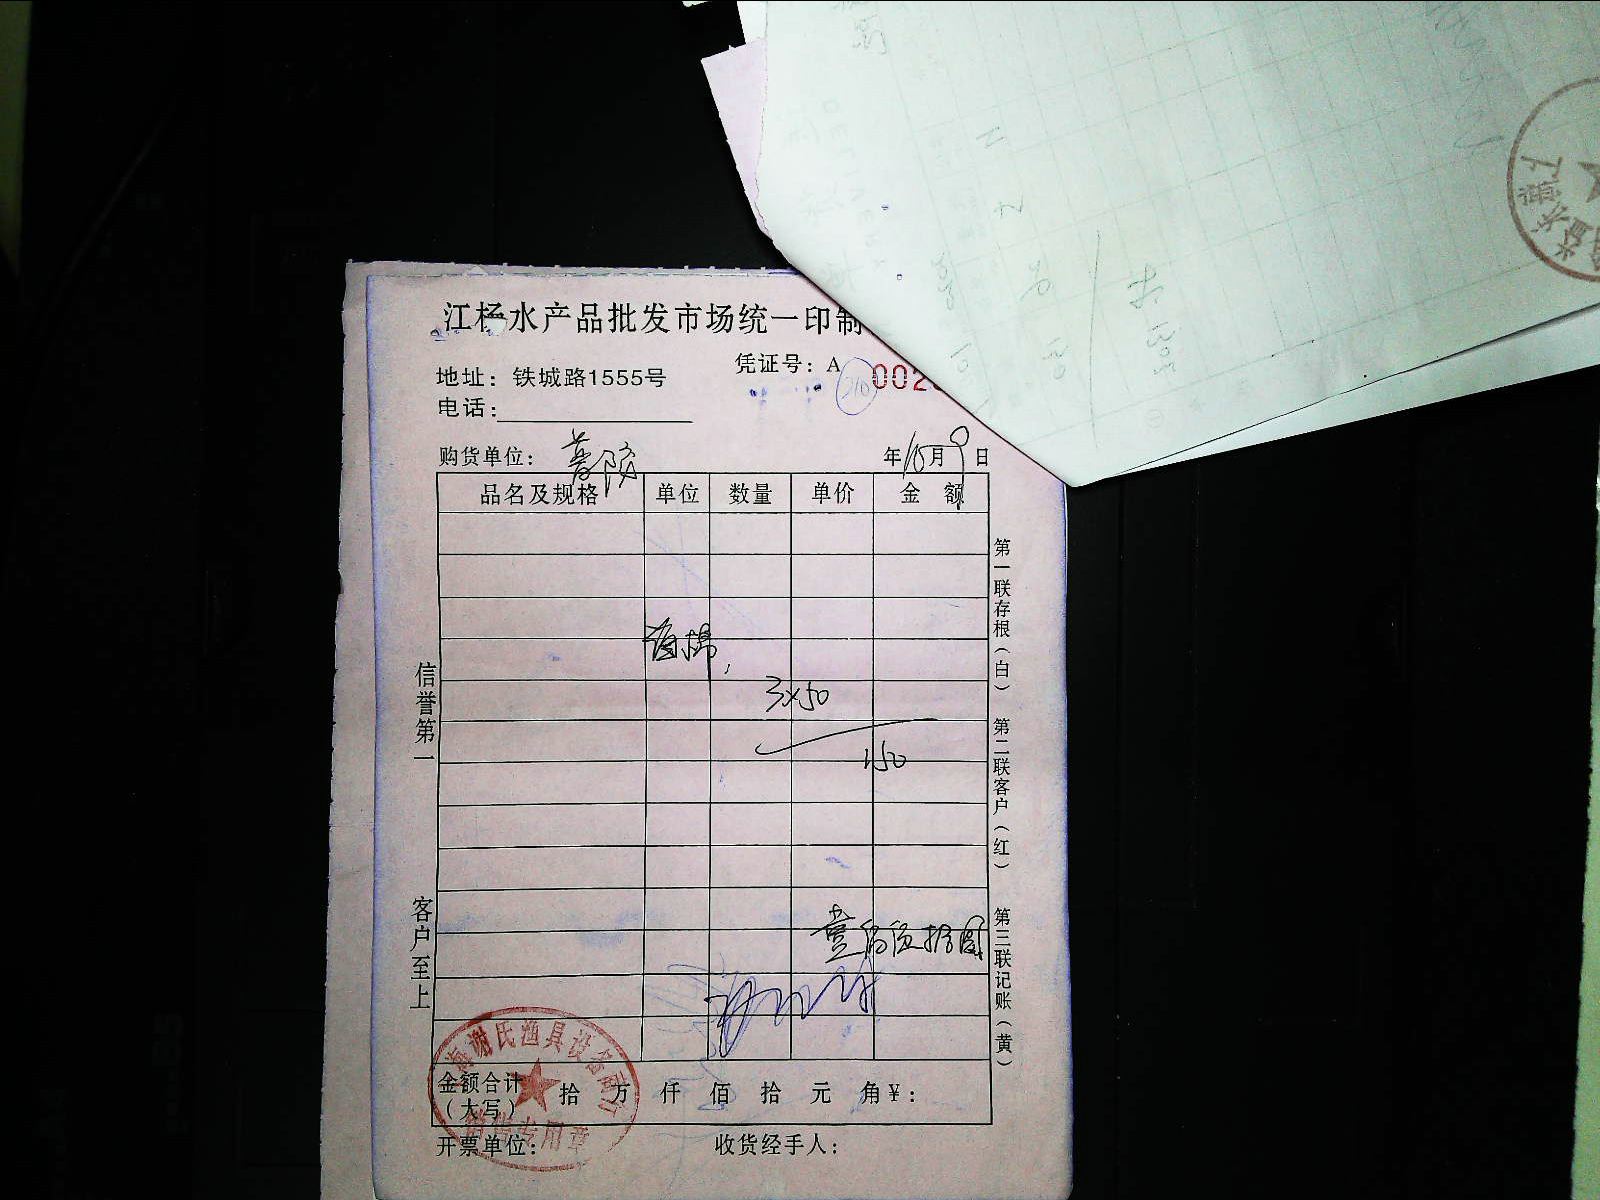 江杨水产品批发市场统一印制
地址：铁城路1555号
凭证号：A 002
210
电话：
购货单位：
年10月9日
品名及规格 单位 数量 单价 金额
3×50
150
壹佰伍拾圆
信誉第一
客户至上
第一联存根（白） 第二联客户（红） 第三联记账（黄）
金额合计（大写） 拾 万 仟 佰 拾 元 角¥：
开票单位： 收货经手人：
海谢氏渔具设备商
专用章